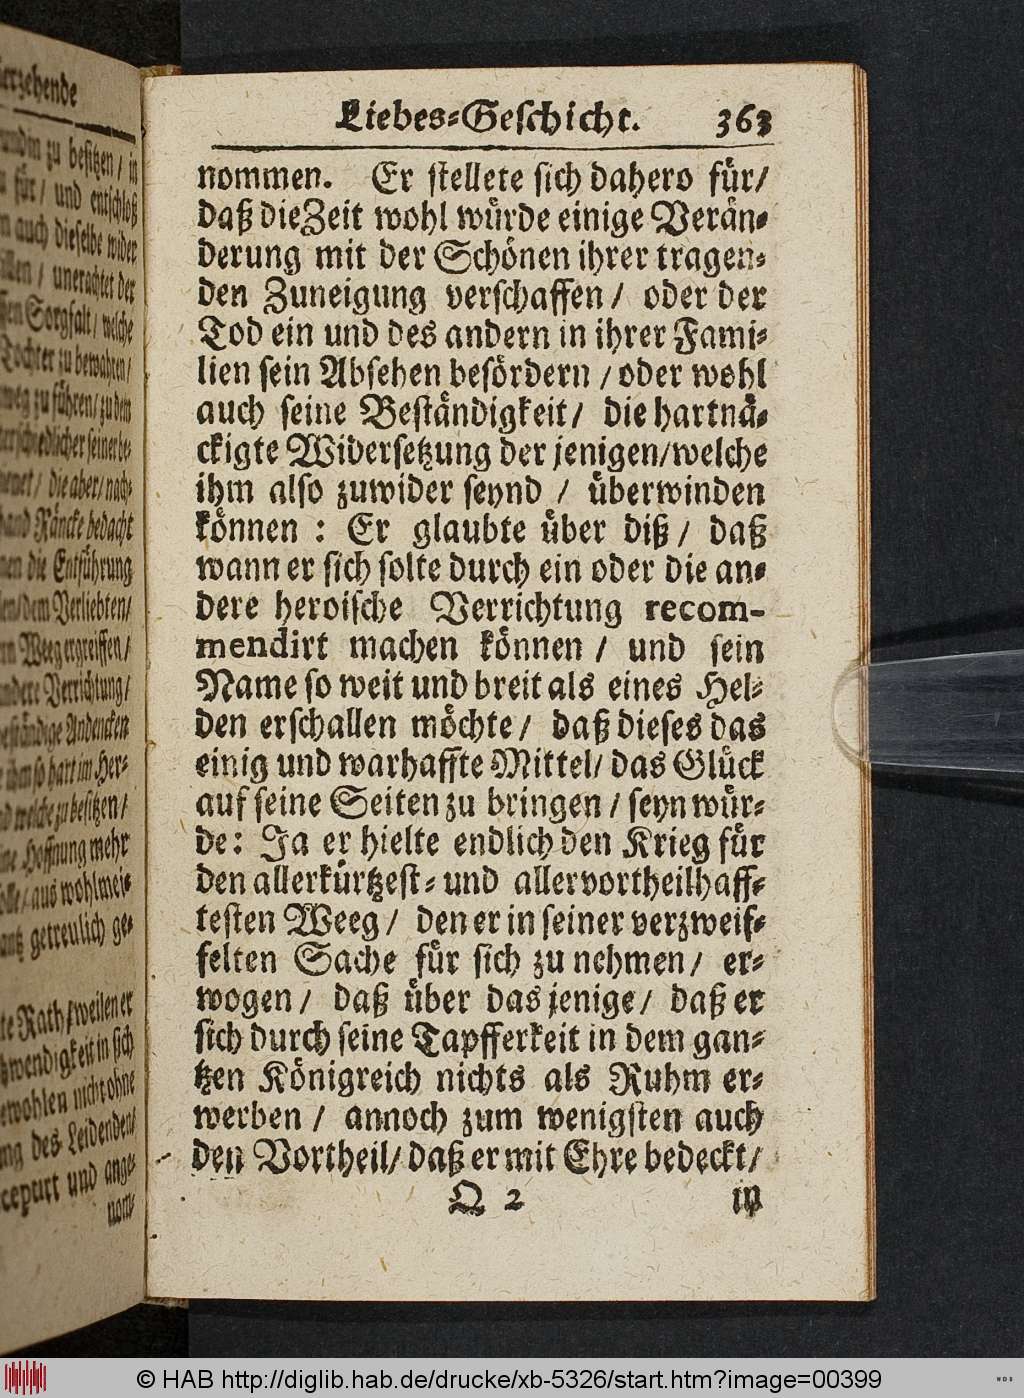 Liebes-Geschicht. 363
nommen. Er stellete sich dahero für/
daß die Zeit wohl würde einige Verän-
derung mit der Schönen ihrer tragen-
den Zuneigung verschaffen / oder der
Tod ein und des andern in ihrer Fami-
lien sein Absehen befördern / oder wohl
auch seine Beständigkeit / die hartnä-
ckigte Widersetzung der jenigen/welche
ihm also zuwider seynd / überwinden
können : Er glaubte über diß / daß
wann er sich solte durch ein oder die an-
dere heroische Verrichtung recom-
mendirt machen können / und sein
Name so weit und breit als eines Hel-
den erschallen möchte / daß dieses das
einig und warhaffte Mittel/ das Glück
auf seine Seiten zu bringen / seyn wür-
de: Ja er hielte endlich den Krieg für
den allerkürtzest- und allervortheilhaff-
testen Weeg / den er in seiner verzweif-
felten Sache für sich zu nehmen / er-
wogen / daß über das jenige / daß er
sich durch seine Tapfferkeit in dem gan-
tzen Königreich nichts als Ruhm er-
werben / annoch zum wenigsten auch
den Vortheil/ daß er mit Ehre bedeckt/
Q 2 in
zu besitzen / in
für / und entschloß
auch dieselbe wider
unerachtet der
Sorgfalt / welche
Tochter zu bewahren /
zu führen / zu dem
seiner be-
die aber / nach-
Räncke bedacht
die Entführung
dem Verliebten /
Weeg ergreiffen /
Verrichtung /
Andencken
so hart im Her-
welche zu besitzen /
Hoffnung mehr
aus wohlmei-
getreulich ge-
Rath / weilen er
in sich
nicht ohne
des Leidenden /
und ange-
nom-
© HAB http://diglib.hab.de/drucke/xb-5326/start.htm?image=00399